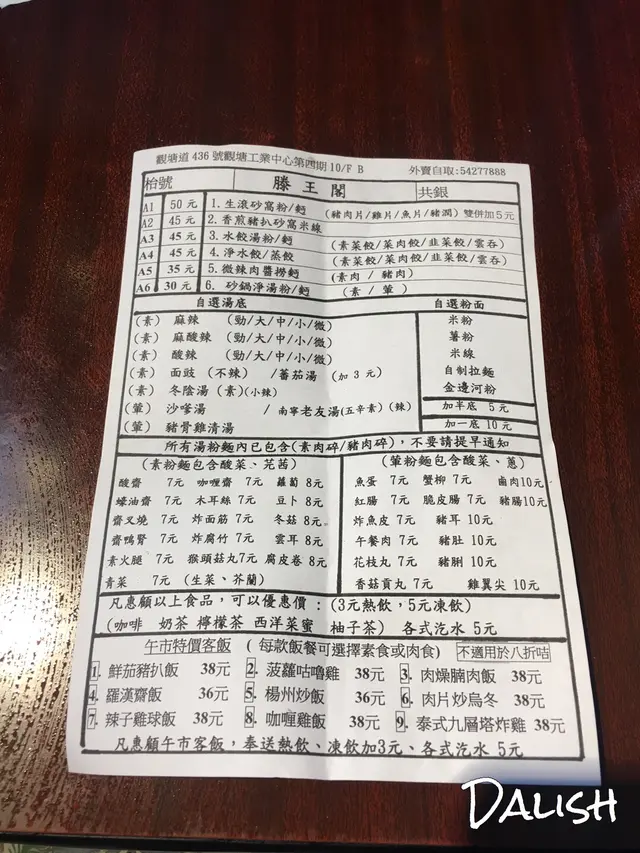 觀塘道 436 號觀塘工業中心第四期 10/F B 外賣自取:54277888
枱號 滕王閣 共銀
A1 50元 1. 生滾砂窩粉/麪 (豬肉片/雞片/魚片/豬潤) 雙併加5元
A2 45元 2. 香煎豬扒砂窩米線
A3 45元 3. 水餃湯粉/麪 (素菜餃/菜肉餃/韭菜餃/雲吞)
A4 45元 4. 淨水餃/蒸餃 (素菜餃/菜肉餃/韭菜餃/雲吞)
A5 35元 5. 微辣肉醬撈麪 (素肉 / 豬肉)
A6 30元 6. 砂鍋淨湯粉/麪 (素 / 葷)
自選湯底 自選粉面
(素) 麻辣 (勁/大/中/小/微) 米粉
(素) 麻酸辣 (勁/大/中/小/微) 薯粉
(素) 酸辣 (勁/大/中/小/微) 米線
(素) 面豉 (不辣) /蕃茄湯 (加 3 元) 自制拉麵
(素) 冬陰湯 (素)(小辣) 金邊河粉
(葷) 沙嗲湯 / 南寧老友湯(五辛素) (辣) 加半底 5元
(葷) 豬骨雞清湯 加一底 10元
所有湯粉麵內已包含(素肉碎/豬肉碎), 不要請提早通知
(素粉麵包含酸菜、芫茜) (葷粉麵包含酸菜、蔥)
酸齋 7元 咖喱齋 7元 蘿蔔 8元 魚蛋 7元 蟹柳 7元 鹵肉10元
蠔油齋 7元 木耳絲 7元 豆卜 8元 紅腸 7元 脆皮腸 7元 豬腸10元
齋叉燒 7元 炸面筋 7元 冬菇 8元 炸魚皮 7元 豬耳 10元
齋鴨腎 7元 炸腐竹 7元 雲耳 8元 午餐肉 7元 豬肚 10元
素火腿 7元 猴頭菇丸7元 腐皮卷 8元 花枝丸 7元 豬脷 10元
青菜 7元 (生菜、芥蘭) 香菇貢丸 7元 雞翼尖 10元
凡惠顧以上食品, 可以優惠價 : (3元熱飲, 5元凍飲)
(咖啡 奶茶 檸檬茶 西洋菜蜜 柚子茶) 各式汽水 5元
午市特價客飯 ( 每款飯餐可選擇素食或肉食) 不適用於八折咭
1. 鮮茄豬扒飯 38元 2. 菠蘿咕嚕雞 38元 3. 肉燥腩肉飯 38元
4. 羅漢齋飯 36元 5. 楊州炒飯 36元 6. 肉片炒烏冬 38元
7. 辣子雞球飯 38元 8. 咖喱雞飯 38元 9. 泰式九層塔炸雞 38元
凡惠顧午市客飯, 奉送熱飲、凍飲加3元、各式汽水 5元
DALISH